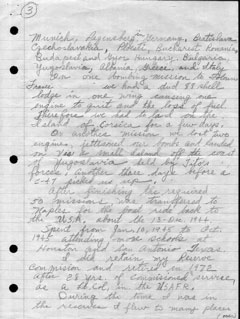 3
Munich, Regensburg Germany, Bratislava
Czechoslovakia, Ploesti, Bucharest Romania,
Budapest and Gyor Hungary, Bulgaria,
Yugoslavia, Albania, Greece, and Italy.
On one bombing mission to
France, we had a dud 88 shell
lodge in one wing causing one
engine to quit and the loss of fuel
Therefore we had to land on the
Island of Corsica for a few days.
On another mission, we lost two
engines, jettisoned our bombs and landed
on Vis a small Island off the coast
of Yugoslavia held by Tito's
forces, another three days before a
C-47 picked us up.
After finishing the required
50 missions, was transferred to
Naples for the boat ride back to
the USA, about the Dec. 1944.
Spent from Jan, 10, 1945 to Oct.
1945 attending more schools at
Houston and San Antonio Texas.
I did retain my Reserve
Commision and retired in 1972
after 28 yrs. of commissioned service,
as a Lt. Col. in the USAFR.
During the time I was in
the reserves I flew to many places